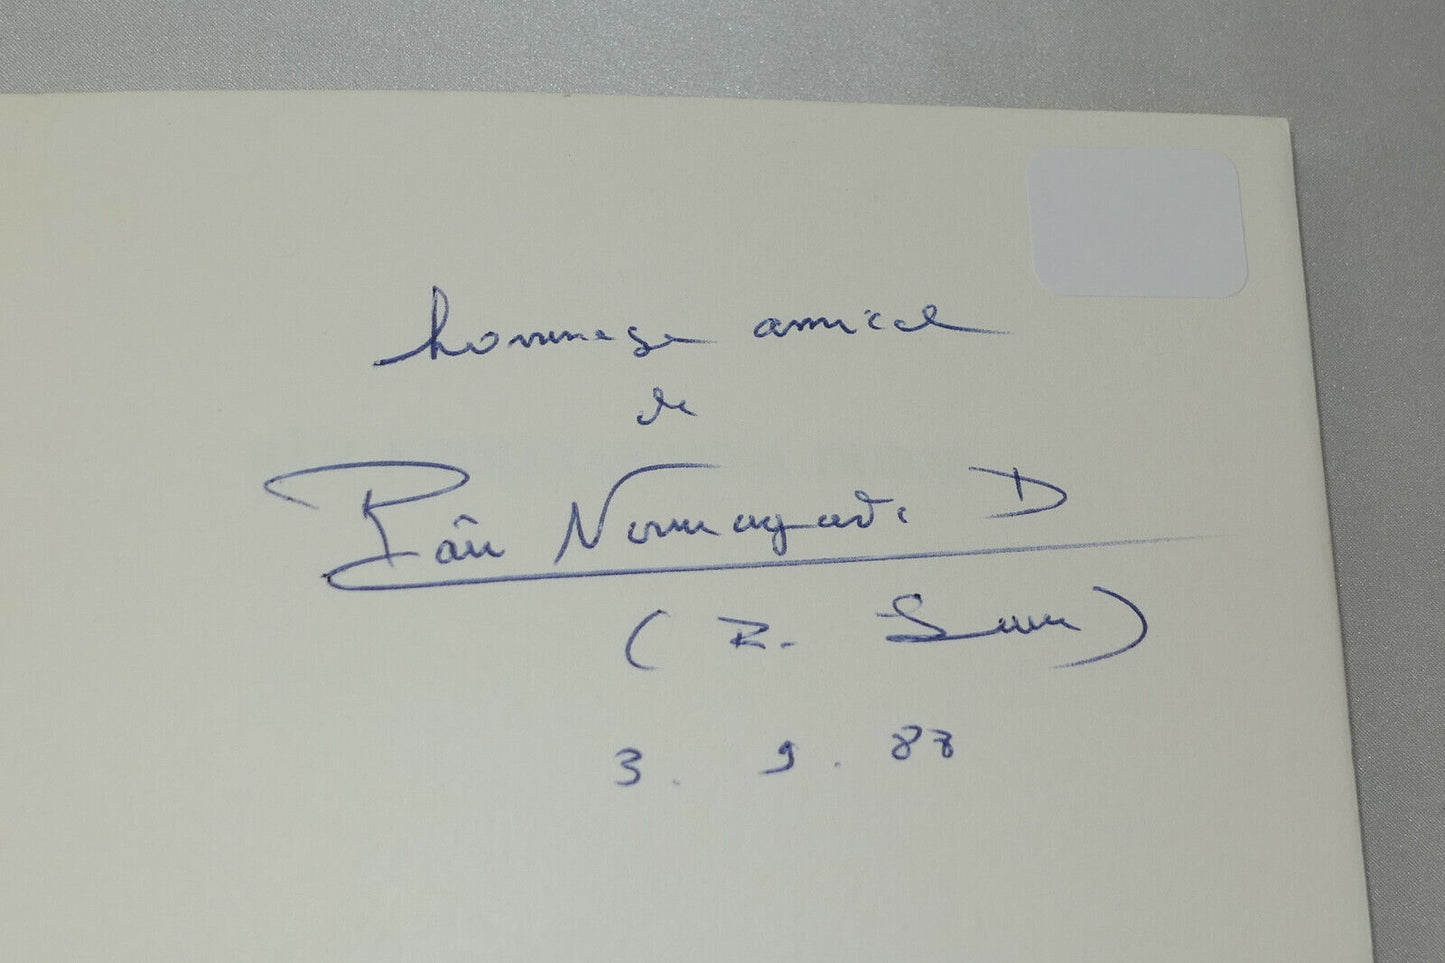 hommage amical
de
Pâu Normagadi D
(R. )
3. 9. 88